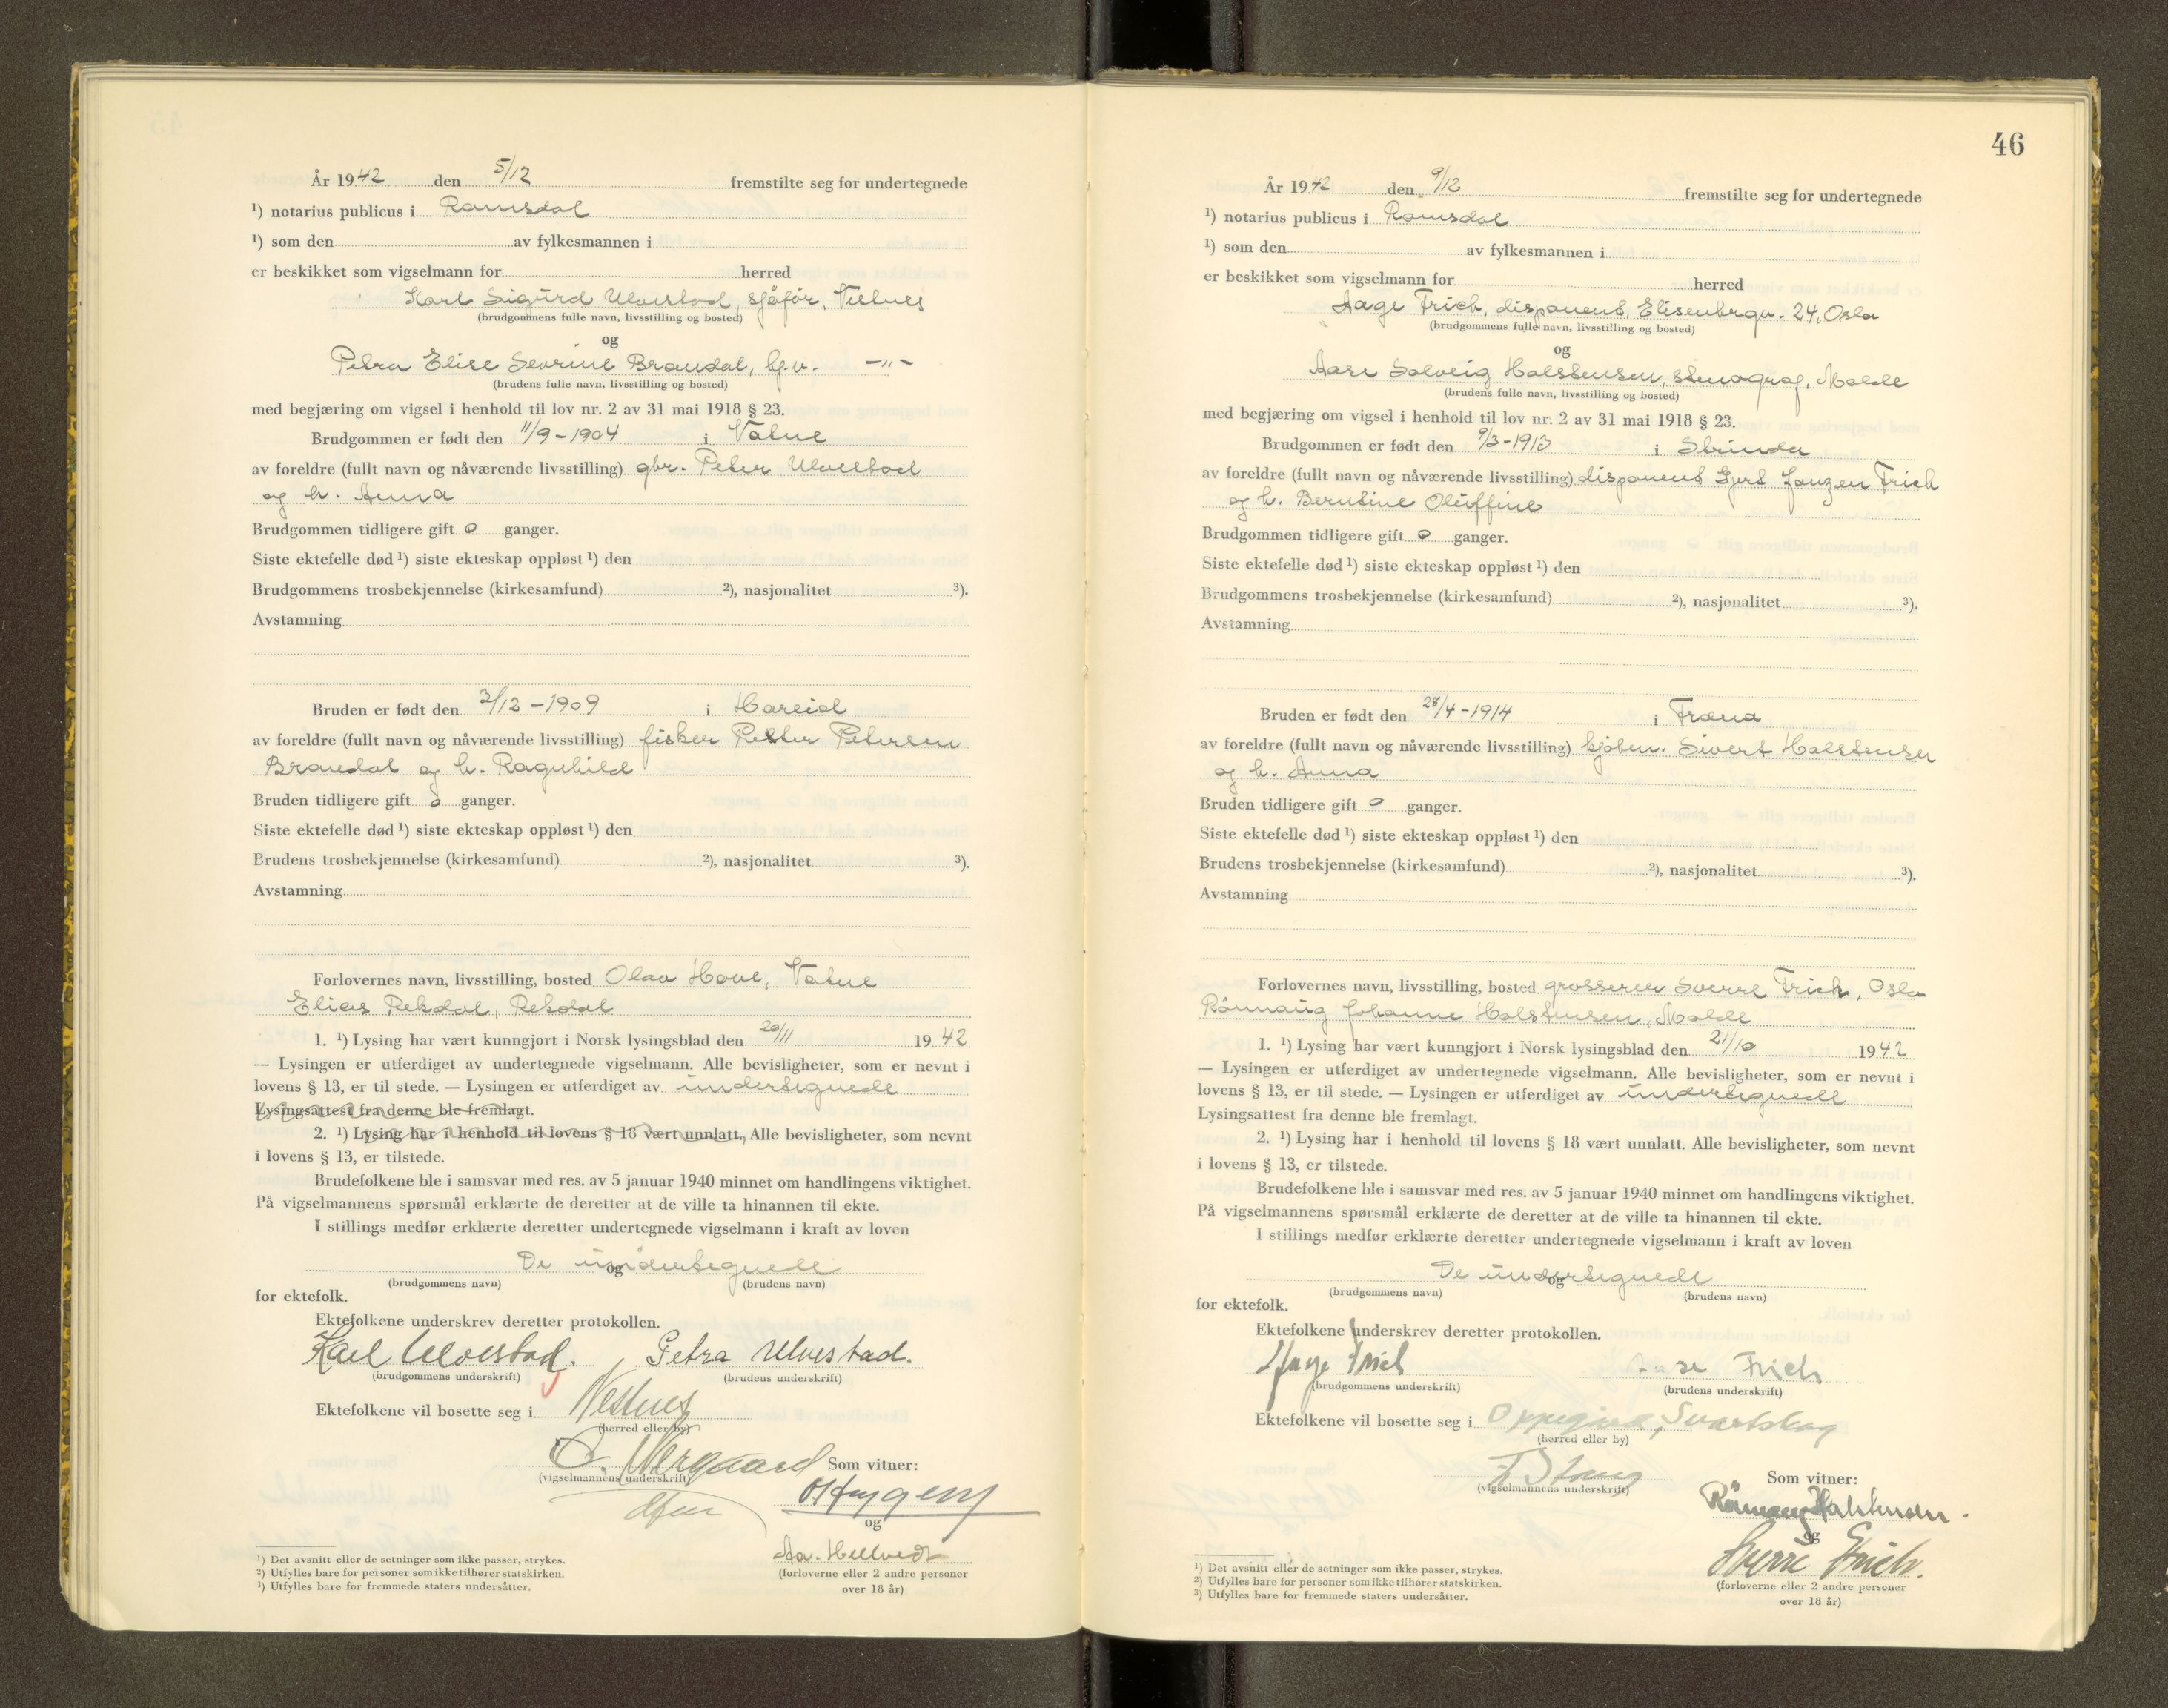 År 1942 den 5/12 fremstilte seg for undertegnede
¹) notarius publicus i Romsdal
¹) som den av fylkesmannen i
er beskikket som vigselmann for herred
Karl Sigurd Ulvestad, sjåfør, Vestnes
(brudgommens fulle navn, livsstilling og bosted)
og
Petra Elise Sevrine Brandal, hj.v. -"-
(brudens fulle navn, livsstilling og bosted)
med begjæring om vigsel i henhold til lov nr. 2 av 31 mai 1918 § 23.
Brudgommen er født den 11/9-1904 i Vatne
av foreldre (fullt navn og nåværende livsstilling) gbr. Peter Ulvestad
og h. Anna
Brudgommen tidligere gift 0 ganger.
Siste ektefelle død ¹) siste ekteskap oppløst ¹) den
Brudgommens trosbekjennelse (kirkesamfund) ²), nasjonalitet ³).
Avstamning
Bruden er født den 2/12-1909 i Hareid
av foreldre (fullt navn og nåværende livsstilling) fisker Petter Petersen
Brandal og h. Ragnhild
Bruden tidligere gift 0 ganger.
Siste ektefelle død ¹) siste ekteskap oppløst ¹) den
Brudens trosbekjennelse (kirkesamfund) ²), nasjonalitet ³).
Avstamning
Forlovernes navn, livsstilling, bosted Olav Hove, Vatne
Elias Rekdal, Rekdal
1. ¹) Lysing har vært kunngjort i Norsk lysingsblad den 20/11 1942
— Lysingen er utferdiget av undertegnede vigselmann. Alle bevisligheter, som er nevnt i
lovens § 13, er til stede. — Lysingen er utferdiget av undertegnede
Lysingsattest fra denne ble fremlagt.
2. ¹) Lysing har i henhold til lovens § 18 vært unnlatt. Alle bevisligheter, som nevnt
i lovens § 13, er tilstede.
Brudefolkene ble i samsvar med res. av 5 januar 1940 minnet om handlingens viktighet.
På vigselmannens spørsmål erklærte de deretter at de ville ta hinannen til ekte.
I stillings medfør erklærte deretter undertegnede vigselmann i kraft av loven
De undertegnede
og
(brudgommens navn) (brudens navn)
for ektefolk.
Ektefolkene underskrev deretter protokollen.
Karl Ulvestad. Petra Ulvestad.
(brudgommens underskrift) (brudens underskrift)
Ektefolkene vil bosette seg i Vestnes
(herred eller by)
Som vitner:
(vigselmannens underskrift)
og
Aa. Hellvedt
(forloverne eller 2 andre personer
over 18 år)
¹) Det avsnitt eller de setninger som ikke passer, strykes.
²) Utfylles bare for personer som ikke tilhører statskirken.
³) Utfylles bare for fremmede staters undersåtter.
46
År 1942 den 9/12 fremstilte seg for undertegnede
¹) notarius publicus i Romsdal
¹) som den av fylkesmannen i
er beskikket som vigselmann for herred
Aage Frich, disponent, Elisenbergv. 24, Oslo
(brudgommens fulle navn, livsstilling og bosted)
og
Aase Solveig Holstensen, stenograf, Molde
(brudens fulle navn, livsstilling og bosted)
med begjæring om vigsel i henhold til lov nr. 2 av 31 mai 1918 § 23.
Brudgommen er født den 9/3-1913 i Strinda
av foreldre (fullt navn og nåværende livsstilling) disponent Gjert Janzen Frich
og h. Berntine Oluffine
Brudgommen tidligere gift 0 ganger.
Siste ektefelle død ¹) siste ekteskap oppløst ¹) den
Brudgommens trosbekjennelse (kirkesamfund) ²), nasjonalitet ³).
Avstamning
Bruden er født den 28/4-1914 i Fræna
av foreldre (fullt navn og nåværende livsstilling) kjøbm. Sivert Holstensen
og h. Anna
Bruden tidligere gift 0 ganger.
Siste ektefelle død ¹) siste ekteskap oppløst ¹) den
Brudens trosbekjennelse (kirkesamfund) ²), nasjonalitet ³).
Avstamning
Forlovernes navn, livsstilling, bosted grosserer Sverre Frich, Oslo
Rönnaug Johanne Holstensen, Molde
1. ¹) Lysing har vært kunngjort i Norsk lysingsblad den 21/10 1942
— Lysingen er utferdiget av undertegnede vigselmann. Alle bevisligheter, som er nevnt i
lovens § 13, er til stede. — Lysingen er utferdiget av undertegnede
Lysingsattest fra denne ble fremlagt.
2. ¹) Lysing har i henhold til lovens § 18 vært unnlatt. Alle bevisligheter, som nevnt
i lovens § 13, er tilstede.
Brudefolkene ble i samsvar med res. av 5 januar 1940 minnet om handlingens viktighet.
På vigselmannens spørsmål erklærte de deretter at de ville ta hinannen til ekte.
I stillings medfør erklærte deretter undertegnede vigselmann i kraft av loven
De undertegnede
og
(brudgommens navn) (brudens navn)
for ektefolk.
Ektefolkene underskrev deretter protokollen.
Aage Frich Aase Frich
(brudgommens underskrift) (brudens underskrift)
Ektefolkene vil bosette seg i Oppegård, Svartskog
(herred eller by)
Som vitner:
(vigselmannens underskrift)
Rönnaug Holstensen.
og
Sverre Frich.
(forloverne eller 2 andre personer
over 18 år)
¹) Det avsnitt eller de setninger som ikke passer, strykes.
²) Utfylles bare for personer som ikke tilhører statskirken.
³) Utfylles bare for fremmede staters undersåtter.